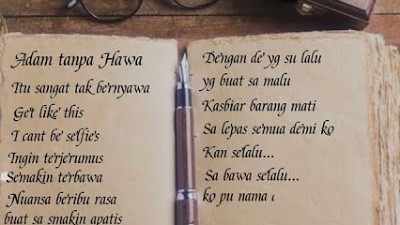 Adam tanpa Hawa
Itu sangat tak bernyawa
Get like this
I cant be selfies
Ingin terjerumus
Semakin terbawa
Nuansa beribu rasa
buat sa smakin apatis
Dengan de' yg su lalu
yg buat sa malu
Kasbiar barang mati
Sa lepas semua demi ko
Kan selalu...
Sa bawa selalu...
ko pu nama